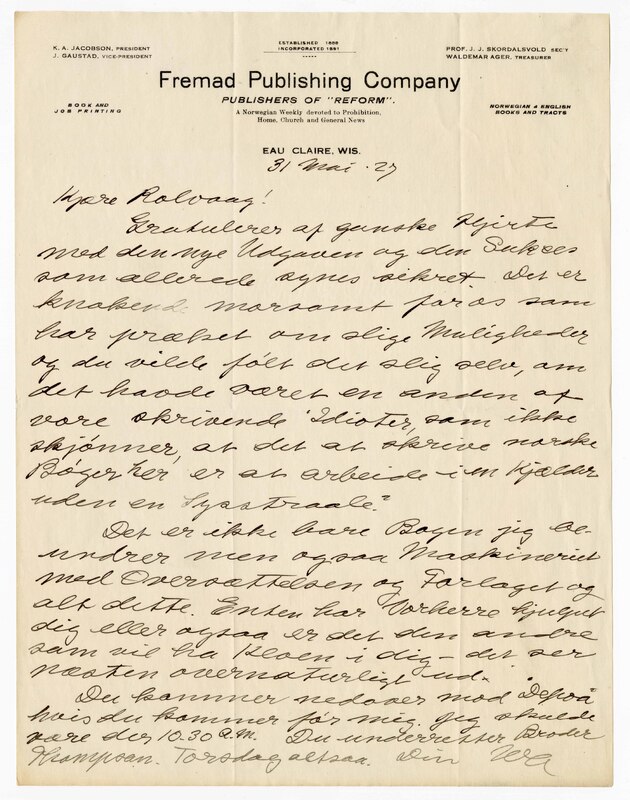 K. A. JACOBSON, PRESIDENT
J. GAUSTAD, VICE-PRESIDENT
ESTABLISHED 1886
INCORPORATED 1891
PROF. J. J. SKORDALSVOLD SEC'Y
WALDEMAR AGER, TREASURER
Fremad Publishing Company
PUBLISHERS OF "REFORM".
BOOK AND
JOB PRINTING
A Norwegian Weekly devoted to Prohibition,
Home, Church and General News
NORWEGIAN & ENGLISH
BOOKS AND TRACTS
EAU CLAIRE, WIS.
31 Mai - 27
Kjære Rolvaag!
Gratulerer af ganske Hjerte
med den nye Udgaven og den Sukces
som allerede synes sikret. Det er
knakende morsomt for os som
har præket om slige Muligheder
og du vilde følt det slig selv, om
det havde været en anden af
vore skrivende "Idioter, som ikke
skjønner, at det at skrive norske
Bøger her er at arbeide i en Kjælder
uden en Lysstraale."
Det er ikke bare Bogen jeg be-
undrer men ogsaa Maskineriet
med Oversættelsen og Forlaget og
alt dette. Enten har Vorherre hjulpet
dig eller ogsaa er det den andre
som vil ha Kloen i dig - det ser
næsten overnaturligt ud.
Du kommer nedover med
hvis du kommer før mig. Jeg skulde
være der 10.30 A.M. Du underretter Broder
Thompson. Torsdag altsaa. Din WA